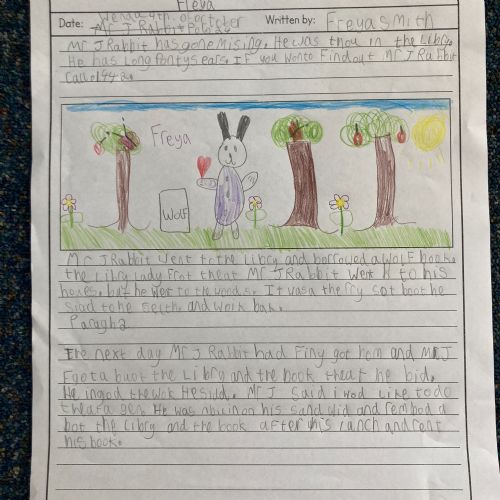 Freya
Date: Wendas 4th of october Written by: Freya smith
Mr J Rabbit
Mr J Rabbit has gone mising. He was thou in the Libry.
He has Long Pontysears. If you wonto Findout Mr J Rabbit
Call
Freya
Wolf
Mr J Rabbit went to the Libry and borroyed a wolf book.
the Libry Lady Frot theat Mr J Rabbit went to his
but he went to the woods. It was a the rry sot boot he
siad to he and work bak.
Paragh2
The next day Mr J Rabbit had Finy got hom and Mr J
Foot a buot the Libry and the book theat he bid.
He the wok He sid. Mr J Said i wod Like to do
theat a gen. He was on his sand wid and rembod a
bot the Libry and the book after his Lanch and rent
his book.